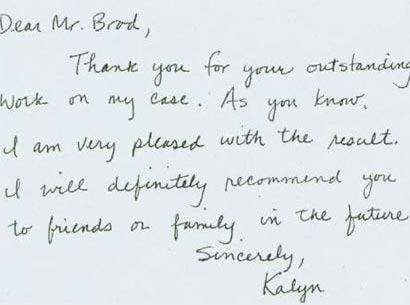 Dear Mr. Brod,
Thank you for your outstanding
work on my case. As you know,
I am very pleased with the result.
I will definitely recommend you
to friends or family in the future
Sincerely,
Kalyn